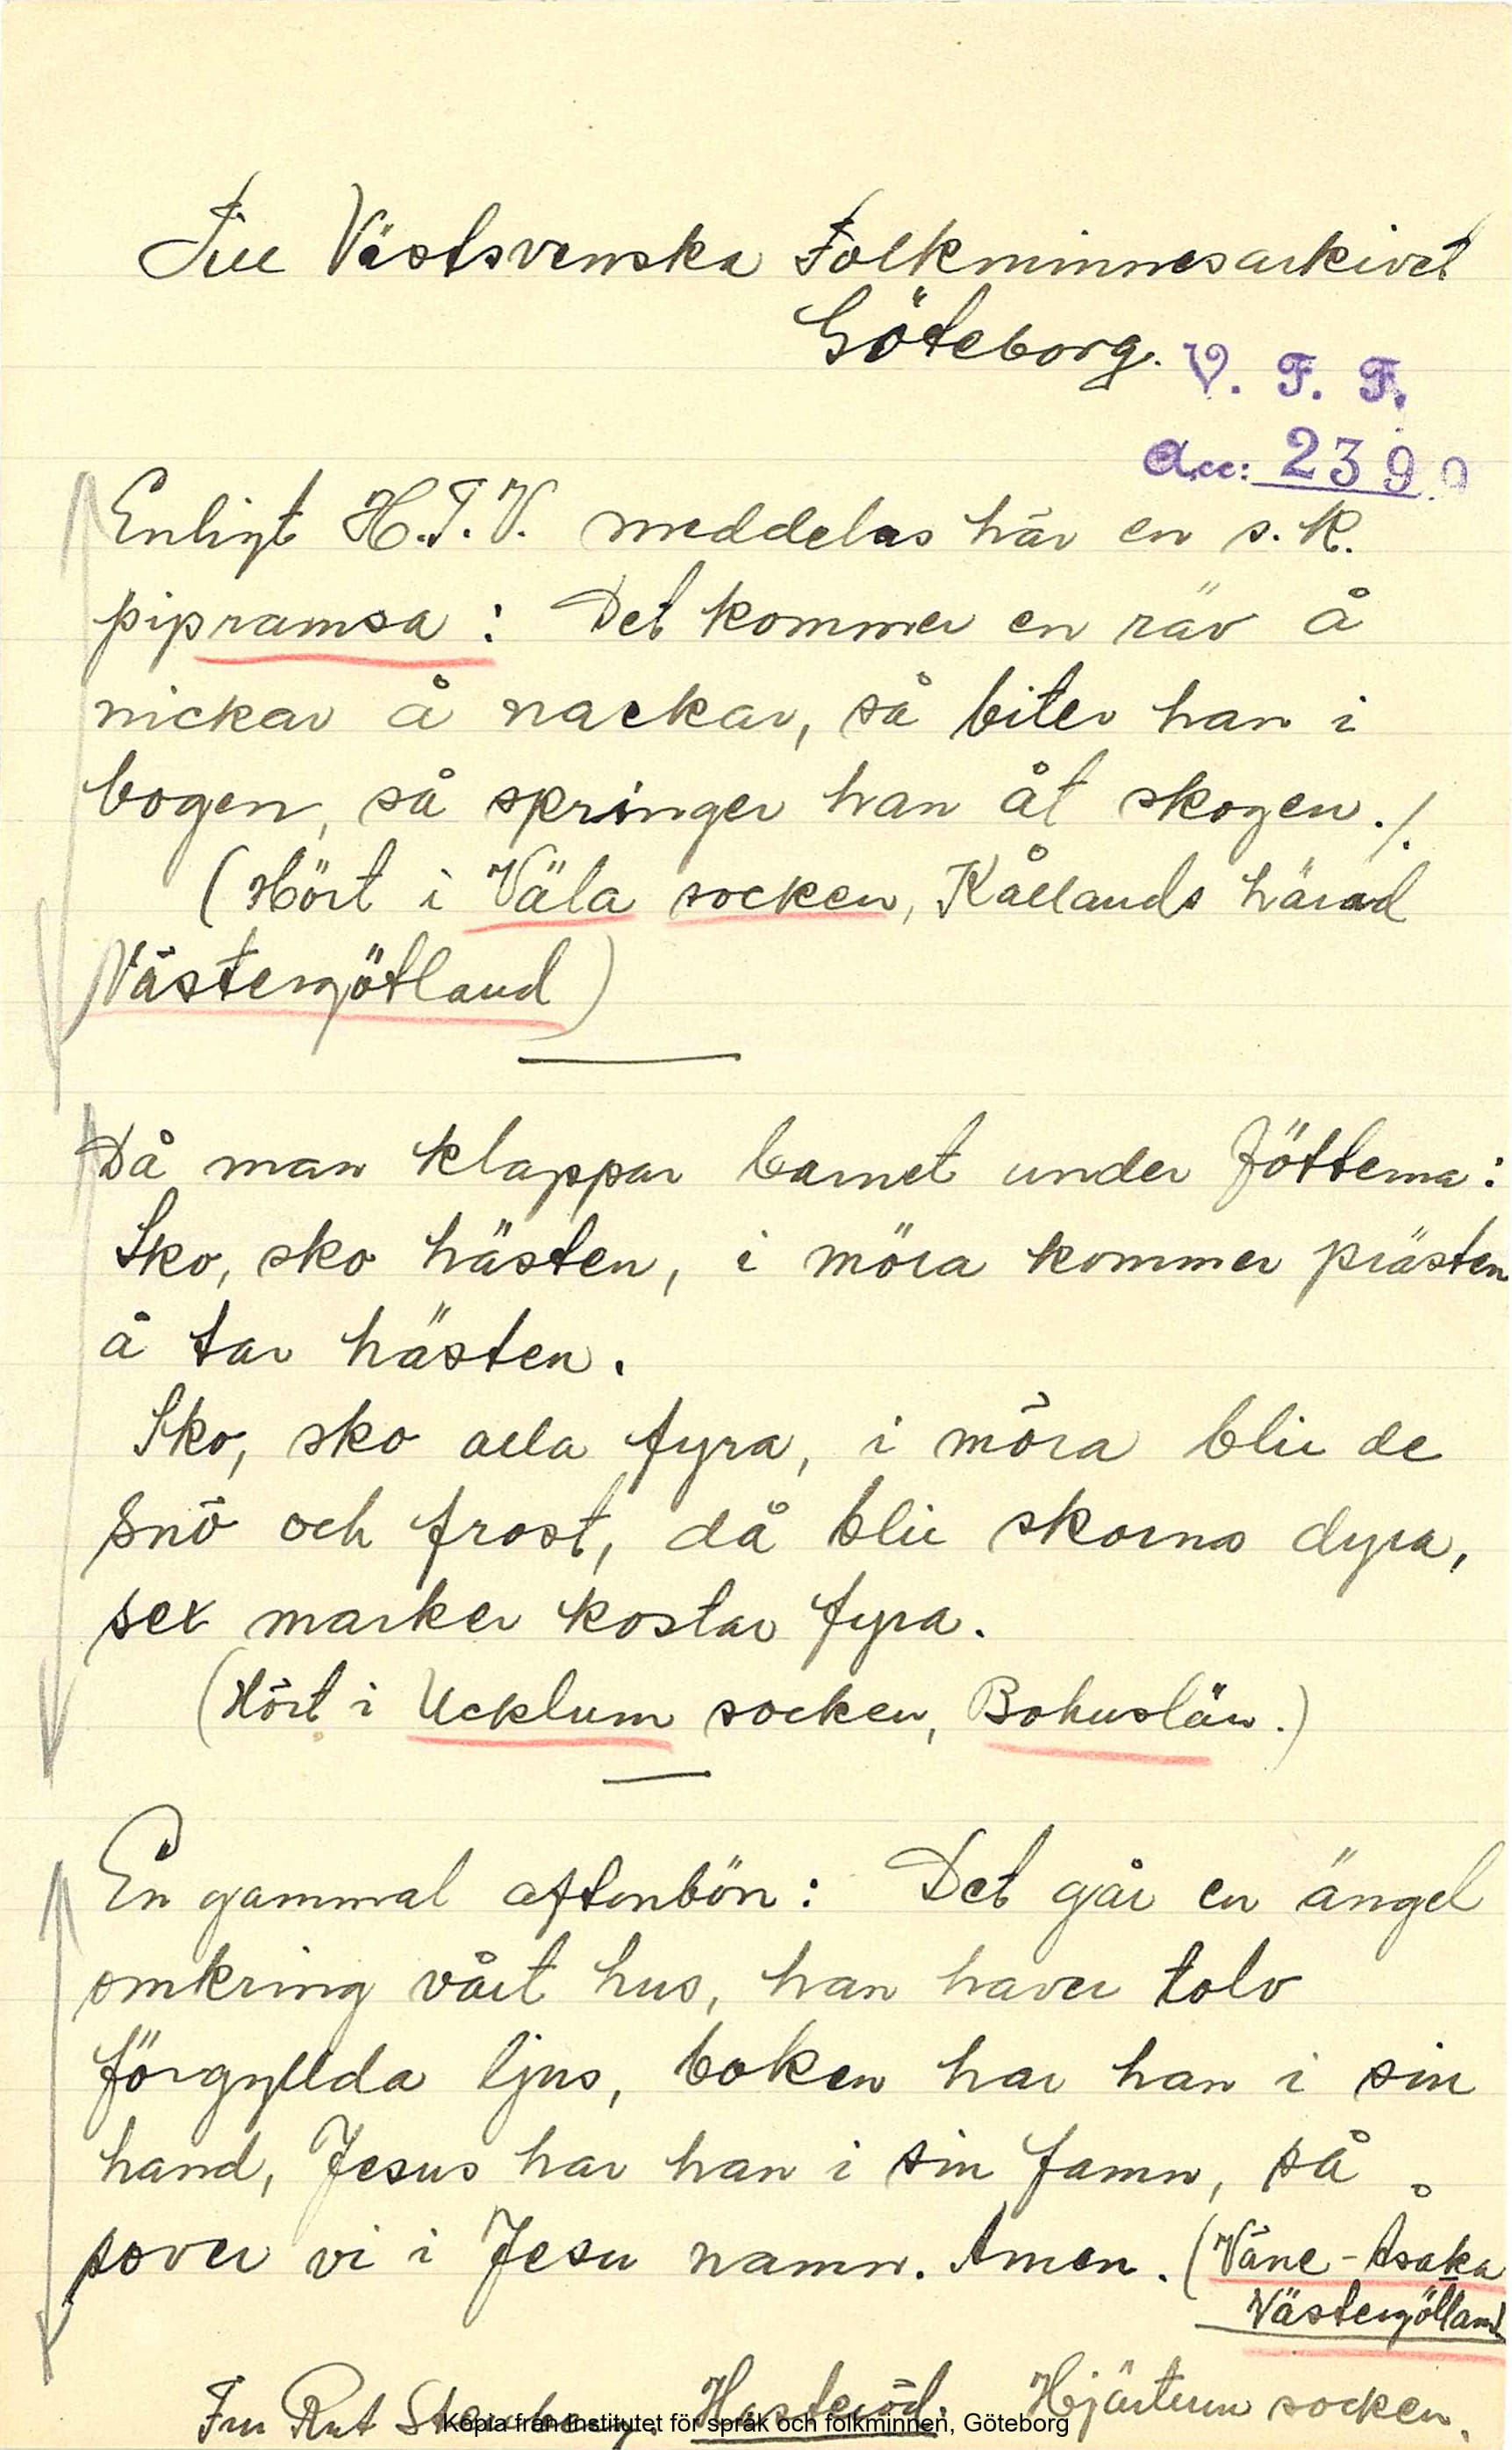 Till Västsvenska Folkminnesarkivet
Göteborg.
V. F. F.
Acc: 2399
Enligt H.T.V. meddelas här en s.k.
pipramsa: Det kommer en räv å
nickar å nackar, så biter han i
bogen, så springer han åt skogen./.
(Hört i Väla socken, Kållands härad
Västergötland)
Då man klappar barnet under fötterna:
Sko, sko hästen, i möra kommer prästen
å tar hästen.
Sko, sko alla fyra, i möra blir de
snö och frost, då blir skorna dyra,
sex marker kostar fyra.
(Hört i Ucklum socken, Bohuslän.)
En gammal aftonbön: Det går en ängel
omkring vårt hus, han haver tolv
förgyllda ljus, boken har han i sin
hand, Jesus har han i sin famn, så
sover vi i Jesu namn. Amen. (Väne-Åsaka
Västergötland
Fru Rut Hasteröd. Hjärtum socken.
Kopia från Institutet för språk och folkminnen, Göteborg